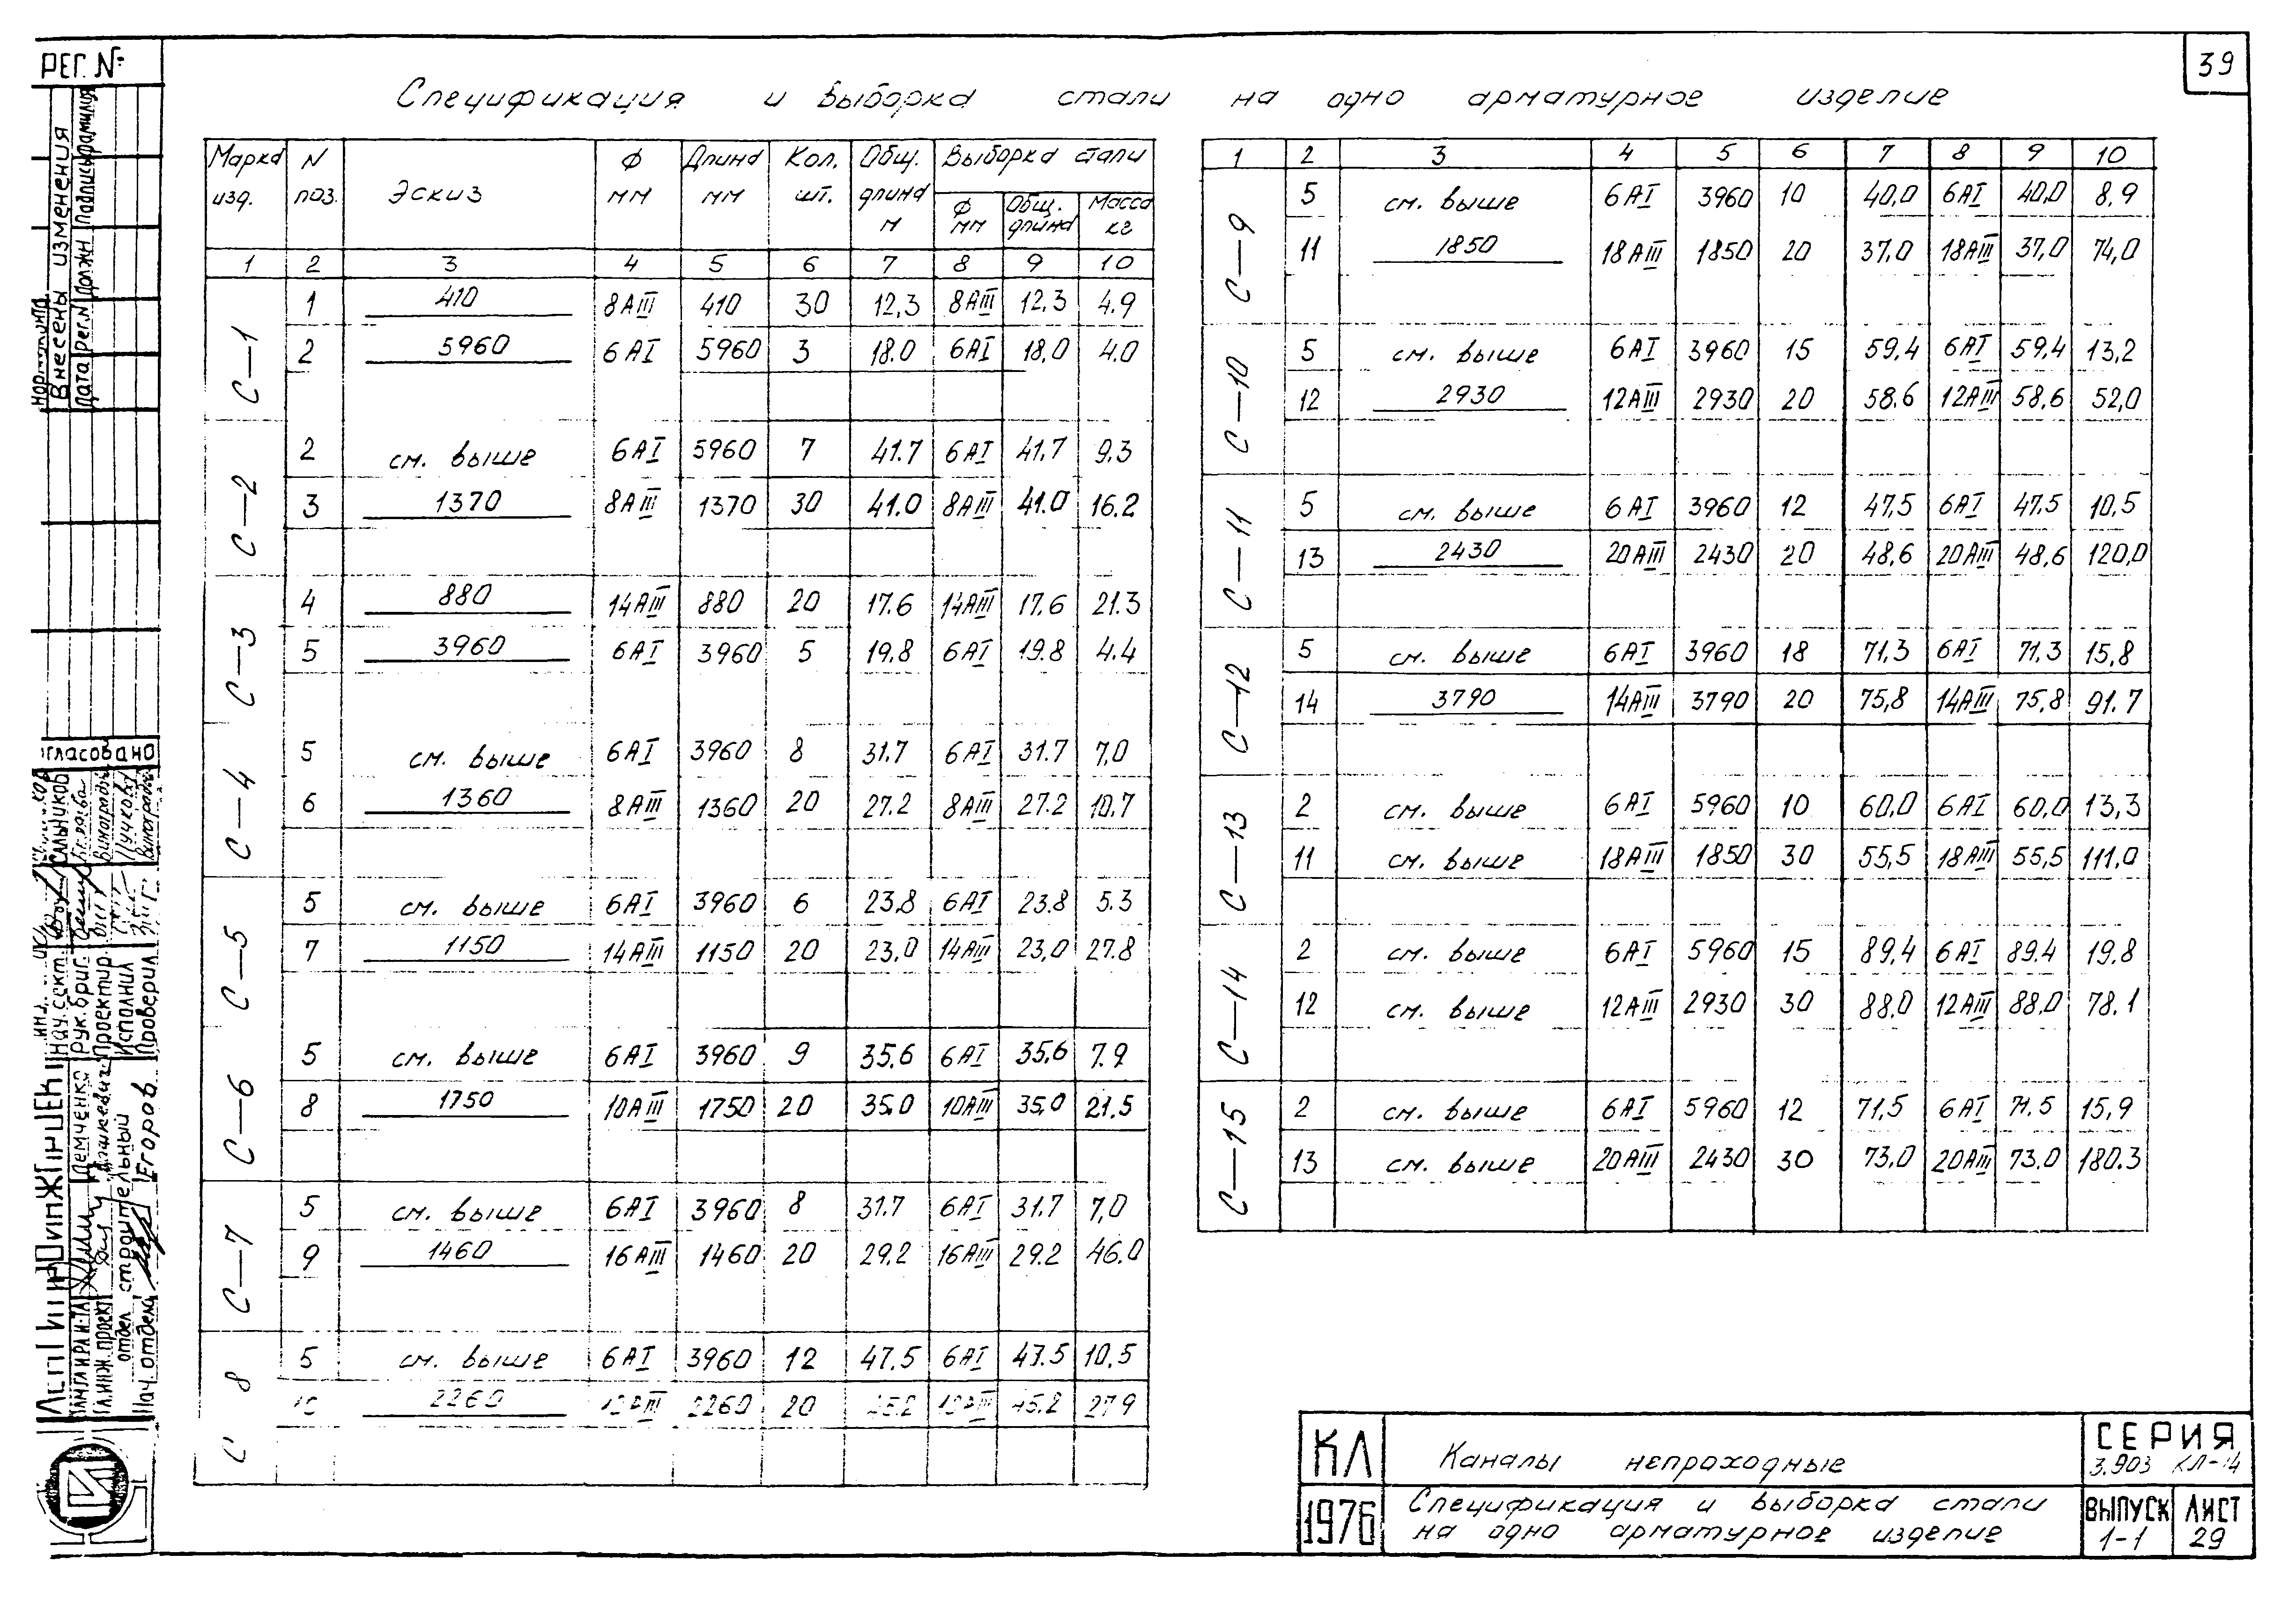 39
Спецификация и выборка стали на одно арматурное изделие
Марка изд. N поз. Эскиз Ф мм Длина мм Кол. шт. Общ. длина м Выборка стали
Ф мм Общ. длина Масса кг
1 2 3 4 5 6 7 8 9 10
С-1
1 410 8АIII 410 30 12,3 8АIII 12.3 4.9
2 5960 6АI 5960 3 18.0 6АI 18,0 4.0
С-2
2 см. выше 6АI 5960 7 41.7 6АI 41,7 9.3
3 1370 8АIII 1370 30 41.0 8АIII 41.0 16.2
С-3
4 880 14АIII 880 20 17.6 14АIII 17.6 21.3
5 3960 6АI 3960 5 19.8 6АI 19.8 4.4
С-4
5 см. выше 6АI 3960 8 31.7 6АI 31.7 7,0
6 1360 8АIII 1360 20 27.2 8АIII 27.2 10,7
С-5
5 см. выше 6АI 3960 6 23,8 6АI 23.8 5.3
7 1150 14АIII 1150 20 23,0 14АIII 23,0 27.8
С-6
5 см. выше 6АI 3960 9 35,6 6АI 35,6 7.9
8 1750 10АIII 1750 20 35,0 10АIII 35,0 21.5
С-7
5 см. выше 6АI 3960 8 31.7 6АI 31.7 7,0
9 1460 16АIII 1460 20 29.2 16АIII 29.2 46.0
С 8
5 см. выше 6АI 3960 12 47.5 6АI 47.5 10,5
2260 2260 20 45.2 27.9
1 2 3 4 5 6 7 8 9 10
С-9
5 см. выше 6АI 3960 10 40,0 6АI 40,0 8,9
11 1850 18АIII 1850 20 37,0 18АIII 37,0 74,0
С-10
5 см. выше 6АI 3960 15 59,4 6АI 59,4 13,2
12 2930 12АIII 2930 20 58.6 12АIII 58,6 52,0
С-11
5 см. выше 6АI 3960 12 47,5 6АI 47.5 10,5
13 2430 20АIII 2430 20 48,6 20АIII 48,6 120,0
С-12
5 см. выше 6АI 3960 18 71,3 6АI 71,3 15,8
14 3790 14АIII 3790 20 75,8 14АIII 75,8 91.7
С-13
2 см. выше 6АI 5960 10 60,0 6АI 60,0 13,3
11 см. выше 18АIII 1850 30 55,5 18АIII 55,5 111,0
С-14
2 см. выше 6АI 5960 15 89,4 6АI 89.4 19.8
12 см. выше 12АIII 2930 30 88,0 12АIII 88,0 78.1
С-15
2 см. выше 6АI 5960 12 71,5 6АI 71.5 15,9
13 см. выше 20АIII 2430 30 73,0 20АIII 73.0 180.3
КЛ
1976
Каналы непроходные
Спецификация и выборка стали
на одно арматурное изделие
СЕРИЯ
3.903 КЛ-14
ВЫПУСК
1-1
ЛИСТ
29
РЕГ. №
Внесены изменения
Дата Рег.N Должн Подпись Фамилия
Нач. сект. Сальников
Рук. бриг.
Проектир.
Исполнил
Проверил
Демченко
отдел строительный
Нач. отдела Егоров